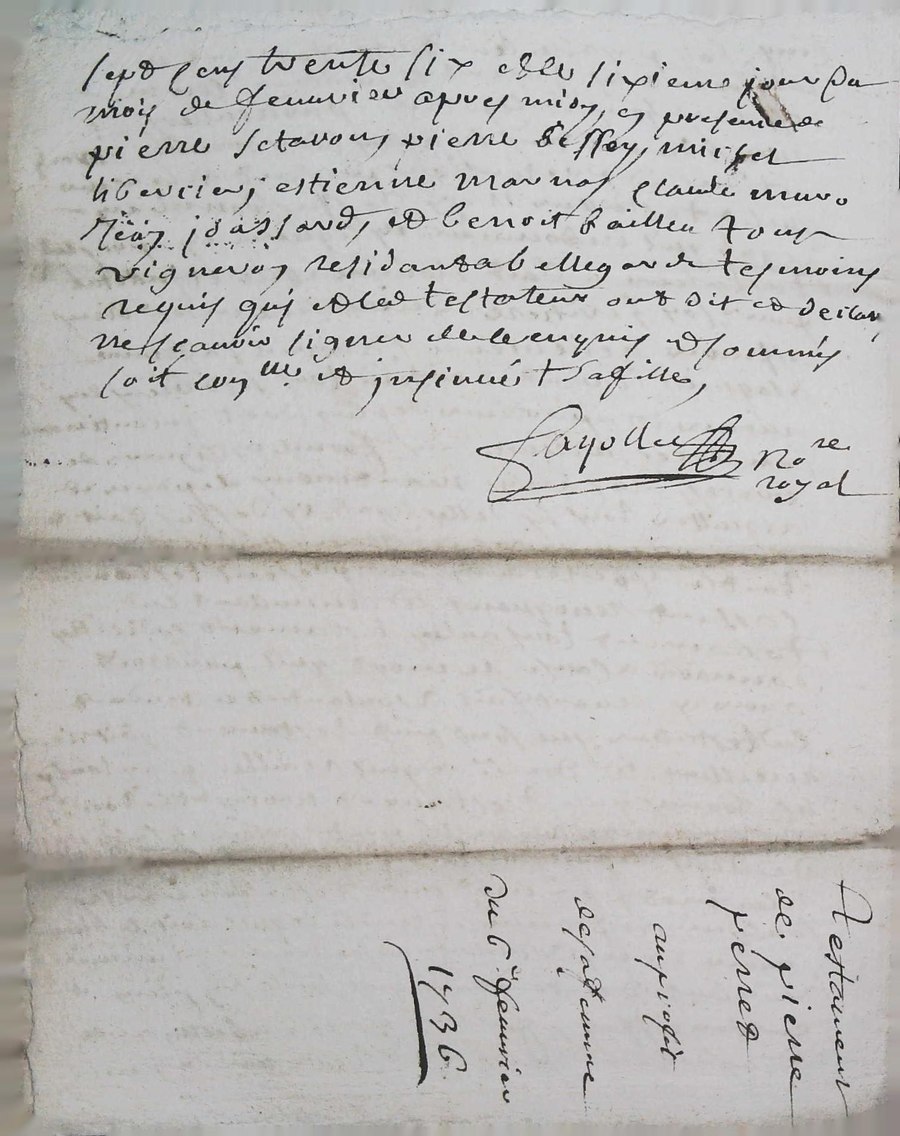 sept cens trente six et le sixieme jour du
mois de fevrier apres midy en presence de
pierre sctavons pierre bessey, michel
libercier, estienne marnas claude muro
Jean joassard, et benoit bailleu tous
vigneron residant a bellegarde tesmoins
requis qui et led testateur ont dit et declar
ne scavoir signer de ce enquis et sommés
soit con lle et insinué
fayolle Nore
royal
Testament
de pierre
perret
au profit
de sa femme
du 6e fevrier
1736